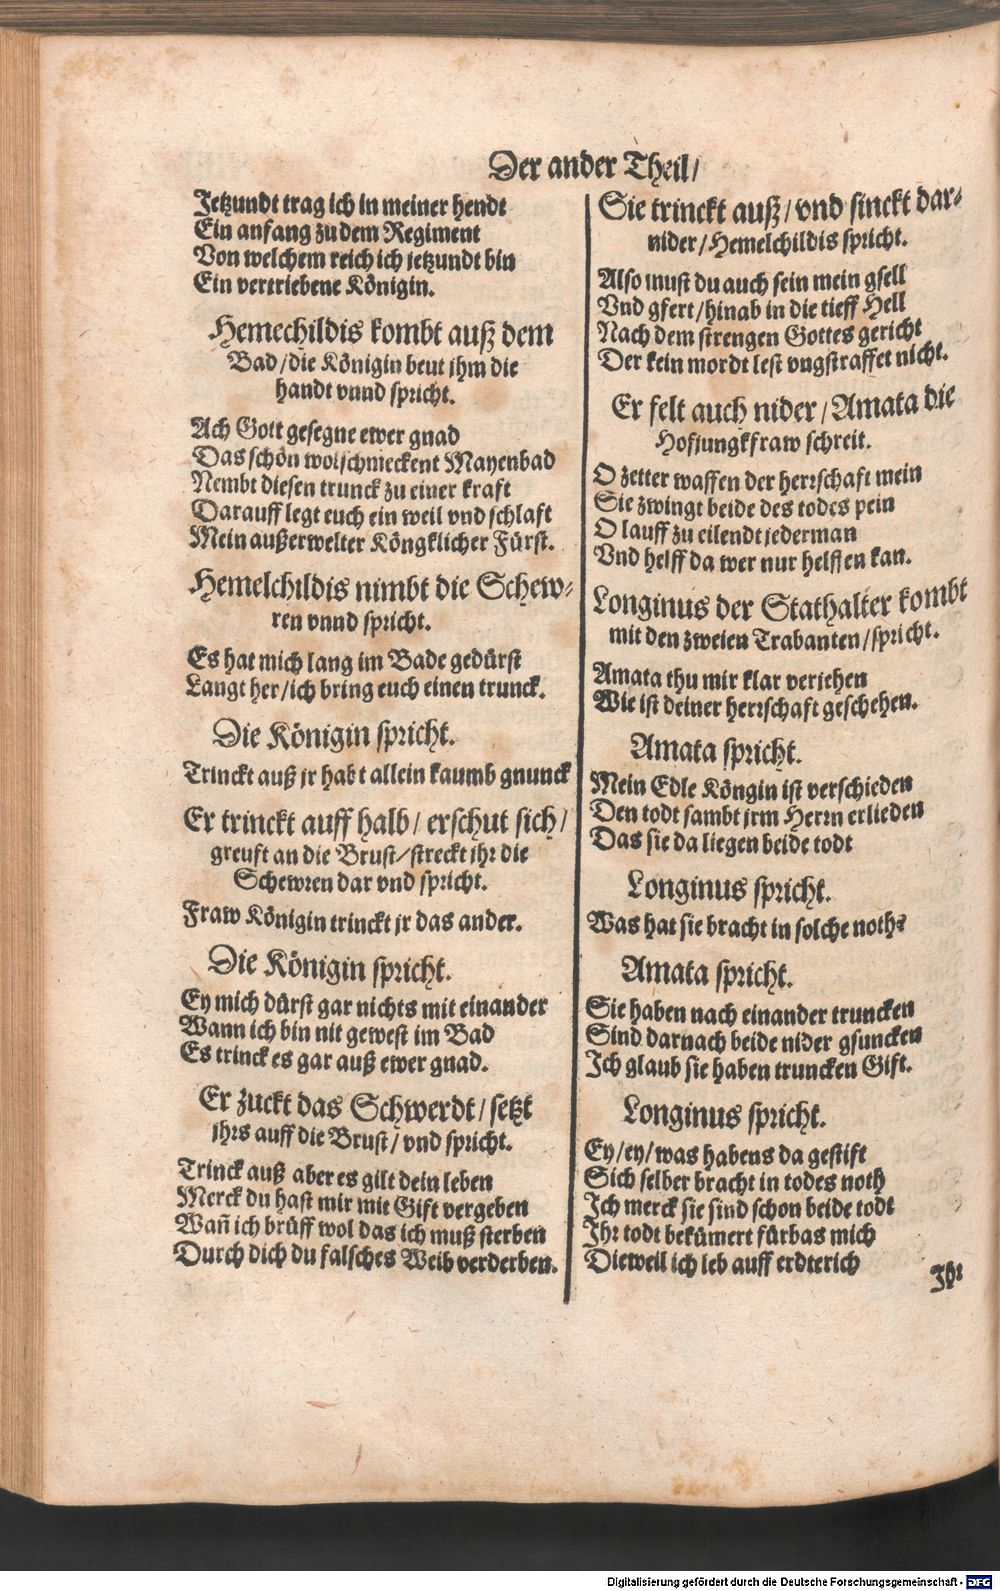 Der ander Theil/
Jetzundt trag ich in meiner hendt
Ein anfang zu dem Regiment
Von welchem reich ich jetzundt bin
Ein vertriebene Königin.
Hemechildis kombt auß dem
Bad/die Königin beut jhm die
handt vnnd spricht.
Ach Gott gesegne ewer gnad
Das schön wolschmeckent Mayenbad
Nembt diesen trunck zu einer kraft
Darauff legt euch ein weil vnd schlaft
Mein außerwelter Köngklicher Fürst.
Hemelchildis nimbt die Schew-
ren vnnd spricht.
Es hat mich lang im Bade gedürst
Langt her/ich bring euch einen trunck.
Die Königin spricht.
Trinckt auß jr habt allein kaumb gnunck
Er trinckt auff halb/ erschut sich/
greuft an die Brust/streckt jhr die
Schewren dar vnd spricht.
Fraw Königin trinckt jr das ander.
Die Königin spricht.
Ey mich dürst gar nichts mit einander
Wann ich bin nit gewest im Bad
Es trinck es gar auß ewer gnad.
Er zuckt das Schwerdt/ setzt
jhrs auff die Brust/ vnd spricht.
Trinck auß aber es gilt dein leben
Merck du hast mir mit Gift vergeben
Wañ ich brüff wol das ich muß sterben
Durch dich du falsches Weib verderben.
Sie trinckt auß/ vnd sinckt dar-
nider/Hemelchildis spricht.
Also must du auch sein mein gsell
Vnd gfert/hinab in die tieff Hell
Nach dem strengen Gottes gericht
Der kein mordt lest vngstraffet nicht.
Er felt auch nider/ Amata die
Hofjungkfraw schreit.
O zetter waffen der herrschaft mein
Sie zwingt beide des todes pein
O lauff zu eilendt jederman
Vnd helff da wer nur helffen kan.
Longinus der Stathalter kombt
mit den zweien Trabanten/spricht.
Amata thu mir klar veriehen
Wie ist deiner herrschaft geschehen.
Amata spricht.
Mein Edle Köngin ist verschieden
Den todt sambt jrm Herrn erlieden
Das sie da liegen beide todt
Longinus spricht.
Was hat sie bracht in solche noth?
Amata spricht.
Sie haben nach einander truncken
Sind darnach beide nider gsuncken
Ich glaub sie haben truncken Gift.
Longinus spricht.
Ey/ey/was habens da gestift
Sich selber bracht in todes noth
Ich merck sie sind schon beide todt
Ihr todt bekümert fürbas mich
Dieweil ich leb auff erdterich
Ihr
Digitalisierung gefördert durch die Deutsche Forschungsgemeinschaft - DFG